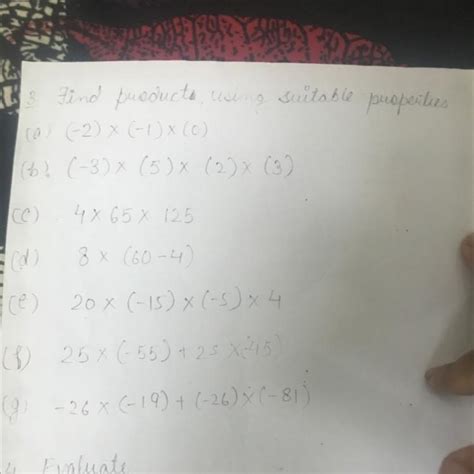 3. Find products, using suitable properties
(a) (-2) × (-1) × (0)
(b) (-3) × (5) × (2) × (3)
(c) 4 × 65 × 125
(d) 8 × (60 - 4)
(e) 20 × (-15) × (-5) × 4
(f) 25 × (-55) + 25 × (-45)
(g) -26 × (-19) + (-26) × (-81)
4. Evaluate